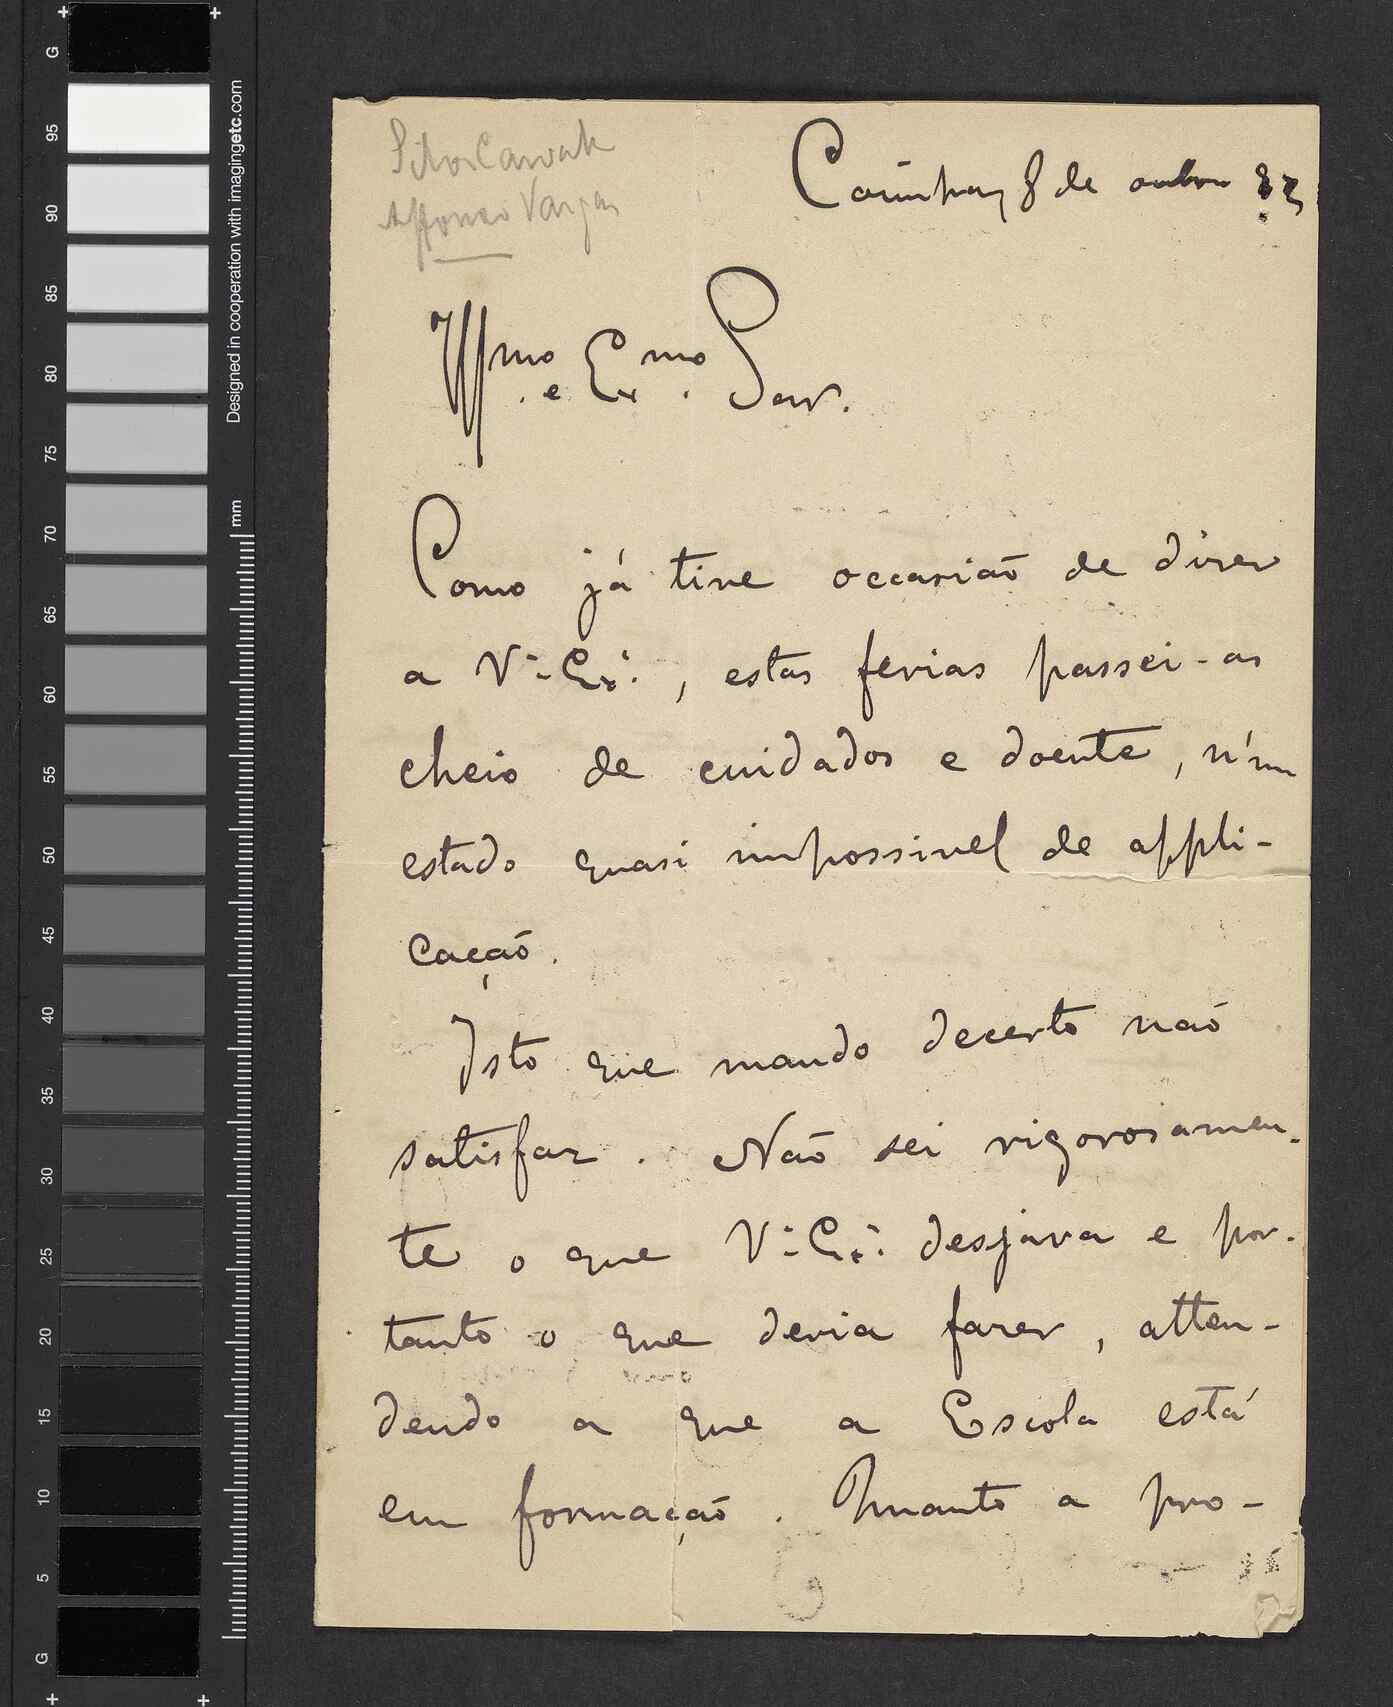 G
95
90
85
80
75
70
65
60
55
50
45
40
35
30
25
20
15
10
5
G
Designed in cooperation with imagingetc.com
mm
Affonso Vargas
8 de outbro 83
Illmo. e Exmo. Senr.
Como já tive occasião de dizer
a V. Exª., estas ferias passei-as
cheio de cuidados e doente, n'um
estado quasi impossivel de appli-
cação.
Isto que mando decerto não
satisfaz. Não sei rigorosamen-
te o que V. Exª. desejava e por-
tanto o que devia fazer, atten-
dendo a que a Escola está
em formação. Quanto a pro-